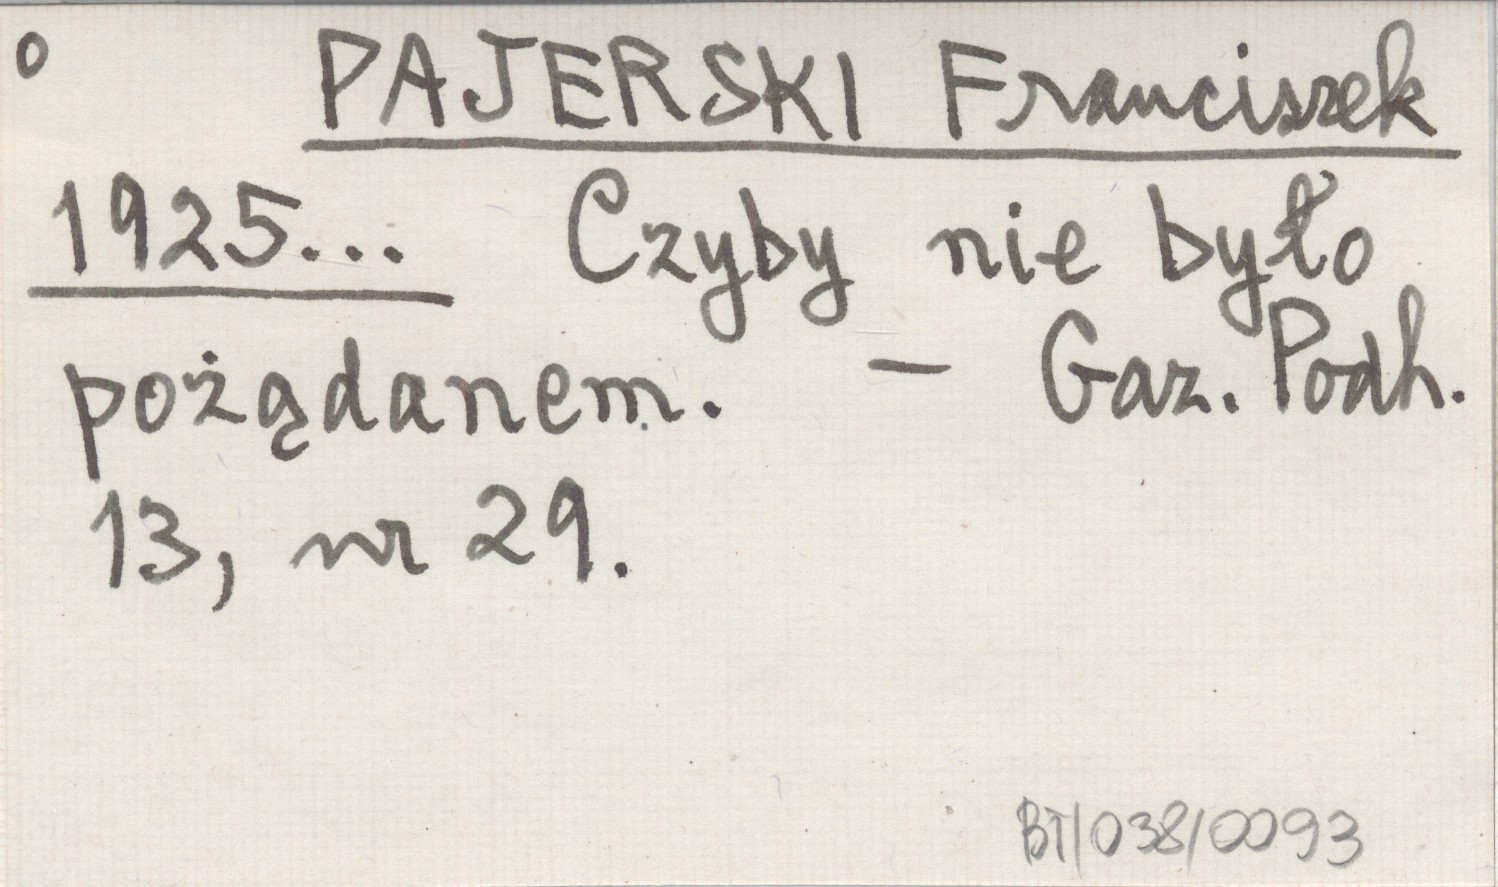 o PAJERSKI Franciszek
1925... Czyby nie było
pożądanem. - Gaz. Podh.
13, nr 29.
BT/038/0093